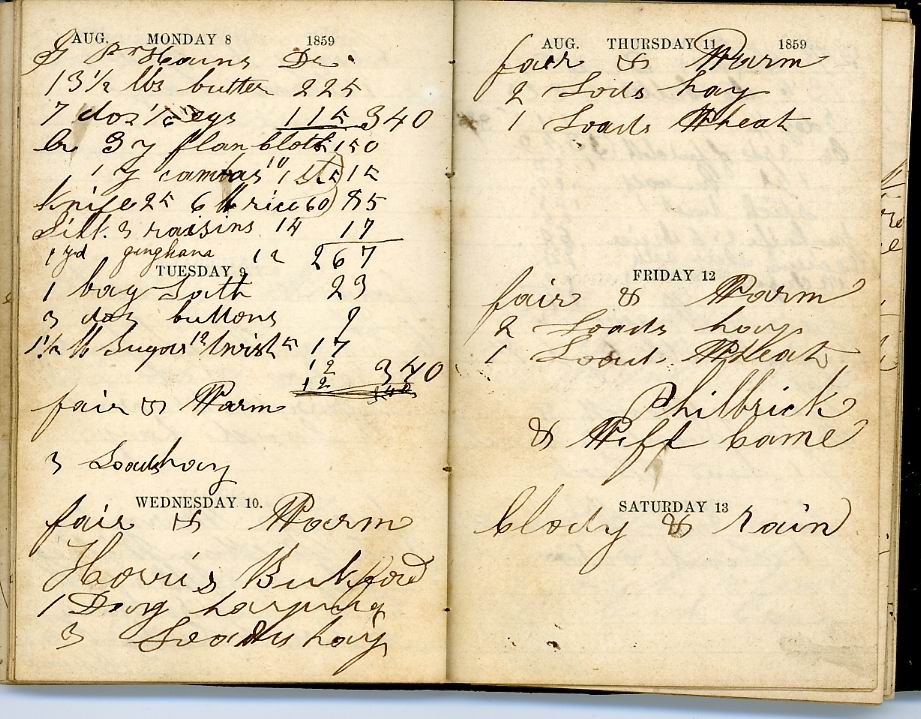 AUG. MONDAY 8 1859
Dr.
13 1/2 lbs butter 225
7 doz 1/2 egs 115 340
3 y flan cloth 150
1 y 10 15
Knife 25 6 lb rice 60) 85
Silk 3 raisins 14 17
1 yd ginghana 12 267
TUESDAY 9
1 bag Salt 23
3 doz buttons 9
1 1/2 lb Sugar 12 twist 5 17
12 340
12
fair & Warm
3 Loads hay
WEDNESDAY 10.
fair & Warm
1 Day haying
3 Loads hay
AUG. THURSDAY 11 1859
fair & Warm
2 Lods hay
1 Loads Wheat
FRIDAY 12
fair & Warm
2 Loads hay
1 Load Wheat
Philbrick
& Wiff Came
SATURDAY 13
Clody & rain